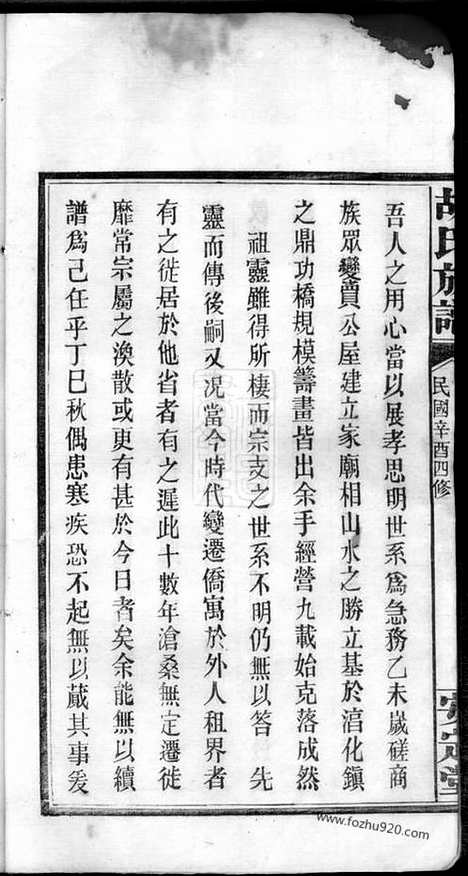 胡氏族譜
民國辛酉四修
安定堂
吾人之用心當以展孝思明世系爲急務乙未歲磋商
族眾變賣公屋建立家廟相山水之勝立基於涫化鎮
之鼎功橋規模籌畫皆出余手經營九載始克落成然
祖靈雖得所棲而宗支之世系不明仍無以答 先
靈而傳後嗣又況當今時代變遷僑寓於外人租界者
有之徙居於他省者有之遲此十數年滄桑無定遷徙
靡常宗屬之渙散或更有甚於今日者矣余能無以續
譜爲己任乎丁巳秋偶患寒疾恐不起無以蕆其事爰
www.fozhu920.com